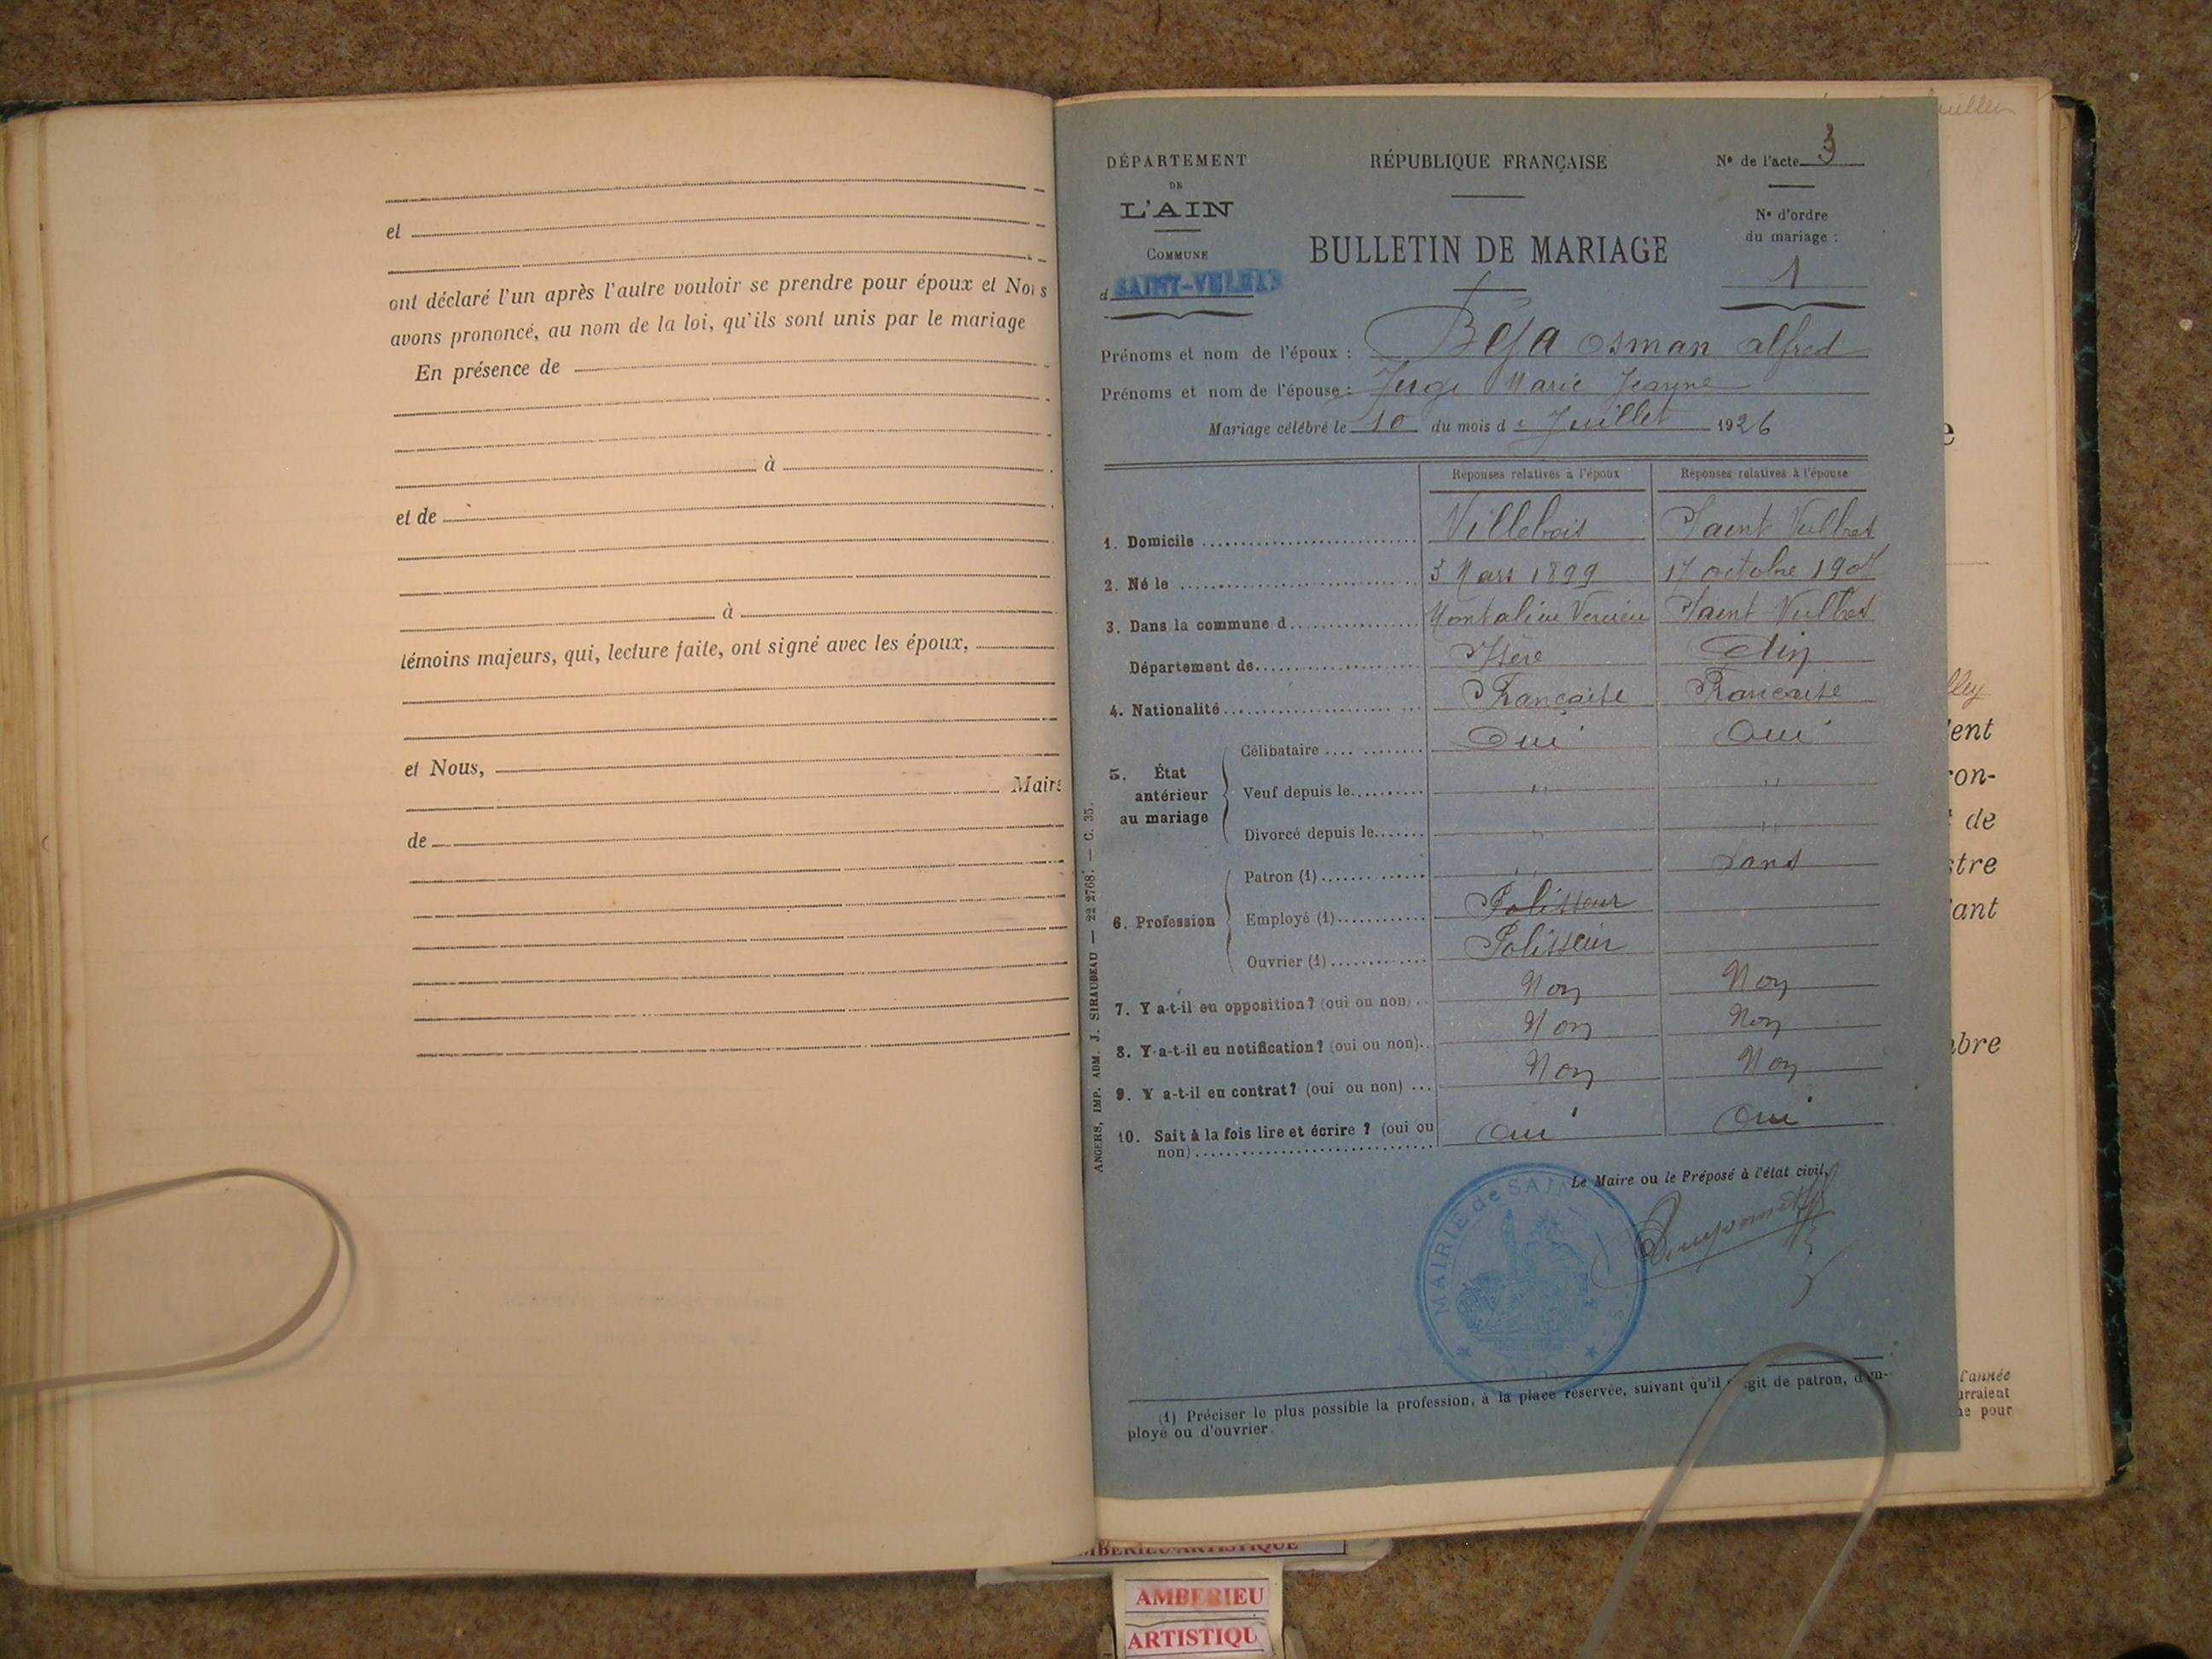 et
ont déclaré l'un après l'autre vouloir se prendre pour époux et Nous
avons prononcé, au nom de la loi, qu'ils sont unis par le mariage
En présence de
à
et de
à
témoins majeurs, qui, lecture faite, ont signé avec les époux,
et Nous,
Maire
de
DÉPARTEMENT
DE
L'AIN
COMMUNE
d SAINT-VULBAS
RÉPUBLIQUE FRANÇAISE
BULLETIN DE MARIAGE
N° de l'acte 3
N° d'ordre
du mariage :
1
Prénoms et nom de l'époux : Osman Alfred
Prénoms et nom de l'épouse : Marie Jeanne
Mariage célébré le 10 du mois de Juillet 1926
Réponses relatives à l'époux Réponses relatives à l'épouse
1. Domicile Villebois Saint Vulbas
2. Né le 3 Mars 1899 17 octobre
3. Dans la commune d Montalieu Vercieu Saint Vulbas
Département de Isère Ain
4. Nationalité Française Française
5. État antérieur au mariage
Célibataire Oui Oui
Veuf depuis le " "
Divorcé depuis le " "
6. Profession
Patron (1) " Sans
Employé (1) Polisseur
Ouvrier (1) Polisseur
7. Y a-t-il eu opposition ? (oui ou non) Non Non
8. Y-a-t-il eu notification ? (oui ou non) Non Non
9. Y a-t-il eu contrat ? (oui ou non) Non Non
10. Sait à la fois lire et écrire ? (oui ou
non) Oui Oui
Le Maire ou le Préposé à l'état civil,
MAIRIE de SAINT
(1) Préciser le plus possible la profession, à la place réservée, suivant qu'il s'agit de patron, d'em-
ployé ou d'ouvrier.
ANGERS, IMP. ADM. J. SIRAUDEAU — 22-2768. — C. 35.
ent
on-
de
stre
ant
bre
l'année
urraient
ne pour
AMBERIEU ARTISTIQUE
AMBERIEU
ARTISTIQU